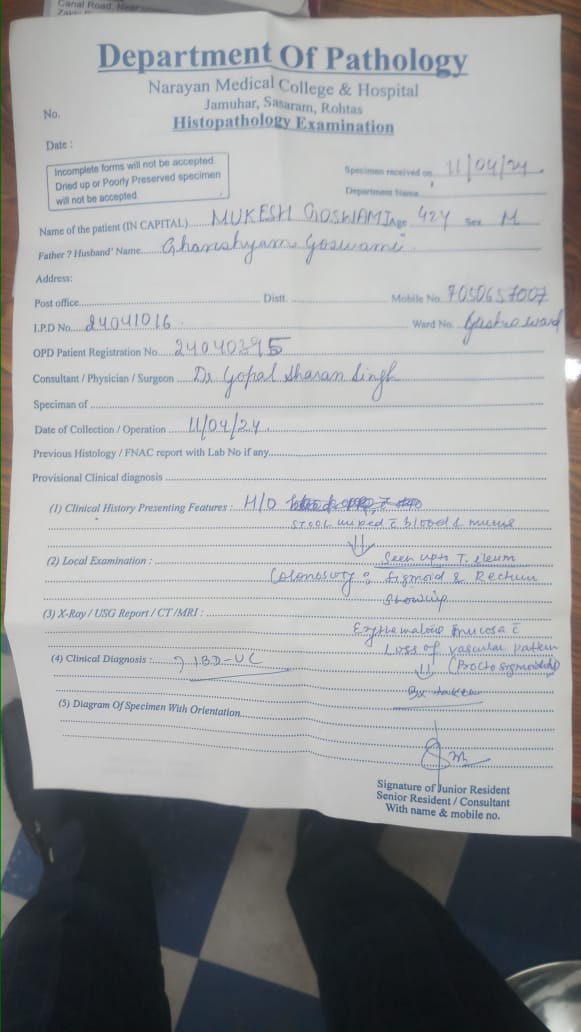 Canal Road, Near
Department Of Pathology
Narayan Medical College & Hospital
Jamuhar, Sasaram, Rohtas
No.
Histopathology Examination
Date :
Incomplete forms will not be accepted.
Dried up or Poorly Preserved specimen
will not be accepted.
Specimen received on 11/04/24
Department Name
Name of the patient (IN CAPITAL) MUKESH GOSWAMI Age 42Y Sex M
Father ? Husband' Name Ghanshyam Goswami
Address:
Post office Distt. Mobile No. 7050657007
I.P.D No. 24041016 Ward No. Gastro ward
OPD Patient Registration No. 24040295
Consultant / Physician / Surgeon Dr Gopal Sharan Singh
Speciman of
Date of Collection / Operation 11/04/24
Previous Histology / FNAC report with Lab No if any
Provisional Clinical diagnosis
(1) Clinical History Presenting Features : H/O
stool mixed c̄ blood & mucus
(2) Local Examination : Seen upto T. ileum
Colonoscopy : Sigmoid & Rectum
Showing
(3) X-Ray / USG Report / CT /MRI :
Erythematous mucosa c̄
Loss of vascular pattern
(4) Clinical Diagnosis : ? IBD-UC (Proctosigmoiditis)
Bx taken
(5) Diagram Of Specimen With Orientation
Signature of Junior Resident
Senior Resident / Consultant
With name & mobile no.